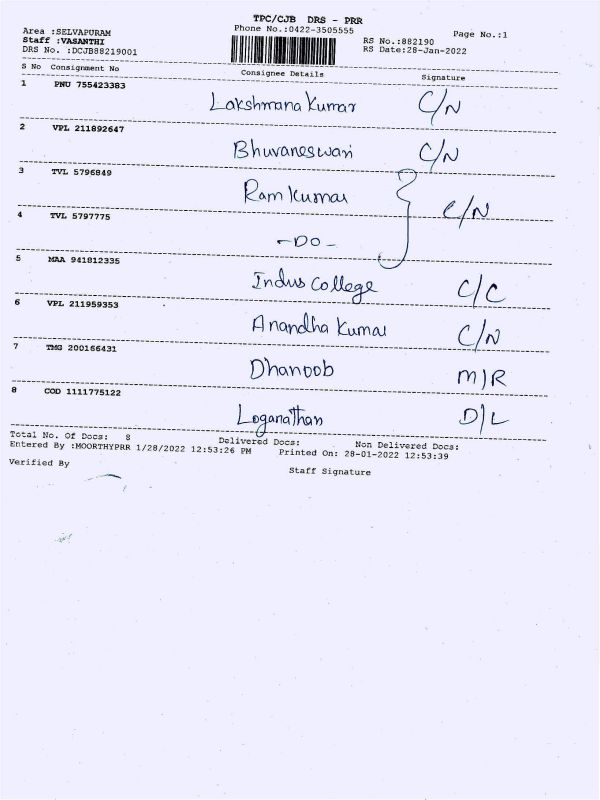 TPC/CJB DRS - PRR
Area :SELVAPURAM Phone No.:0422-3505555 Page No.:1
Staff :VASANTHI RS No.:882190
DRS No. :DCJB88219001 RS Date:28-Jan-2022
S No Consignment No Consignee Details Signature
1 PNU 755423383
Lakshmana Kumar C/N
2 VPL 211892647
Bhuvaneswari C/N
3 TVL 5796849
Ram Kumar C/N
4 TVL 5797775
-DO-
5 MAA 941812335
Indus College C/C
6 VPL 211959353
Anandha Kumar C/N
7 TMG 200166431
Dhanoob M/R
8 COD 1111775122
Loganathan D/L
Total No. Of Docs: 8 Delivered Docs: Non Delivered Docs:
Entered By :MOORTHYPRR 1/28/2022 12:53:26 PM Printed On: 28-01-2022 12:53:39
Verified By Staff Signature